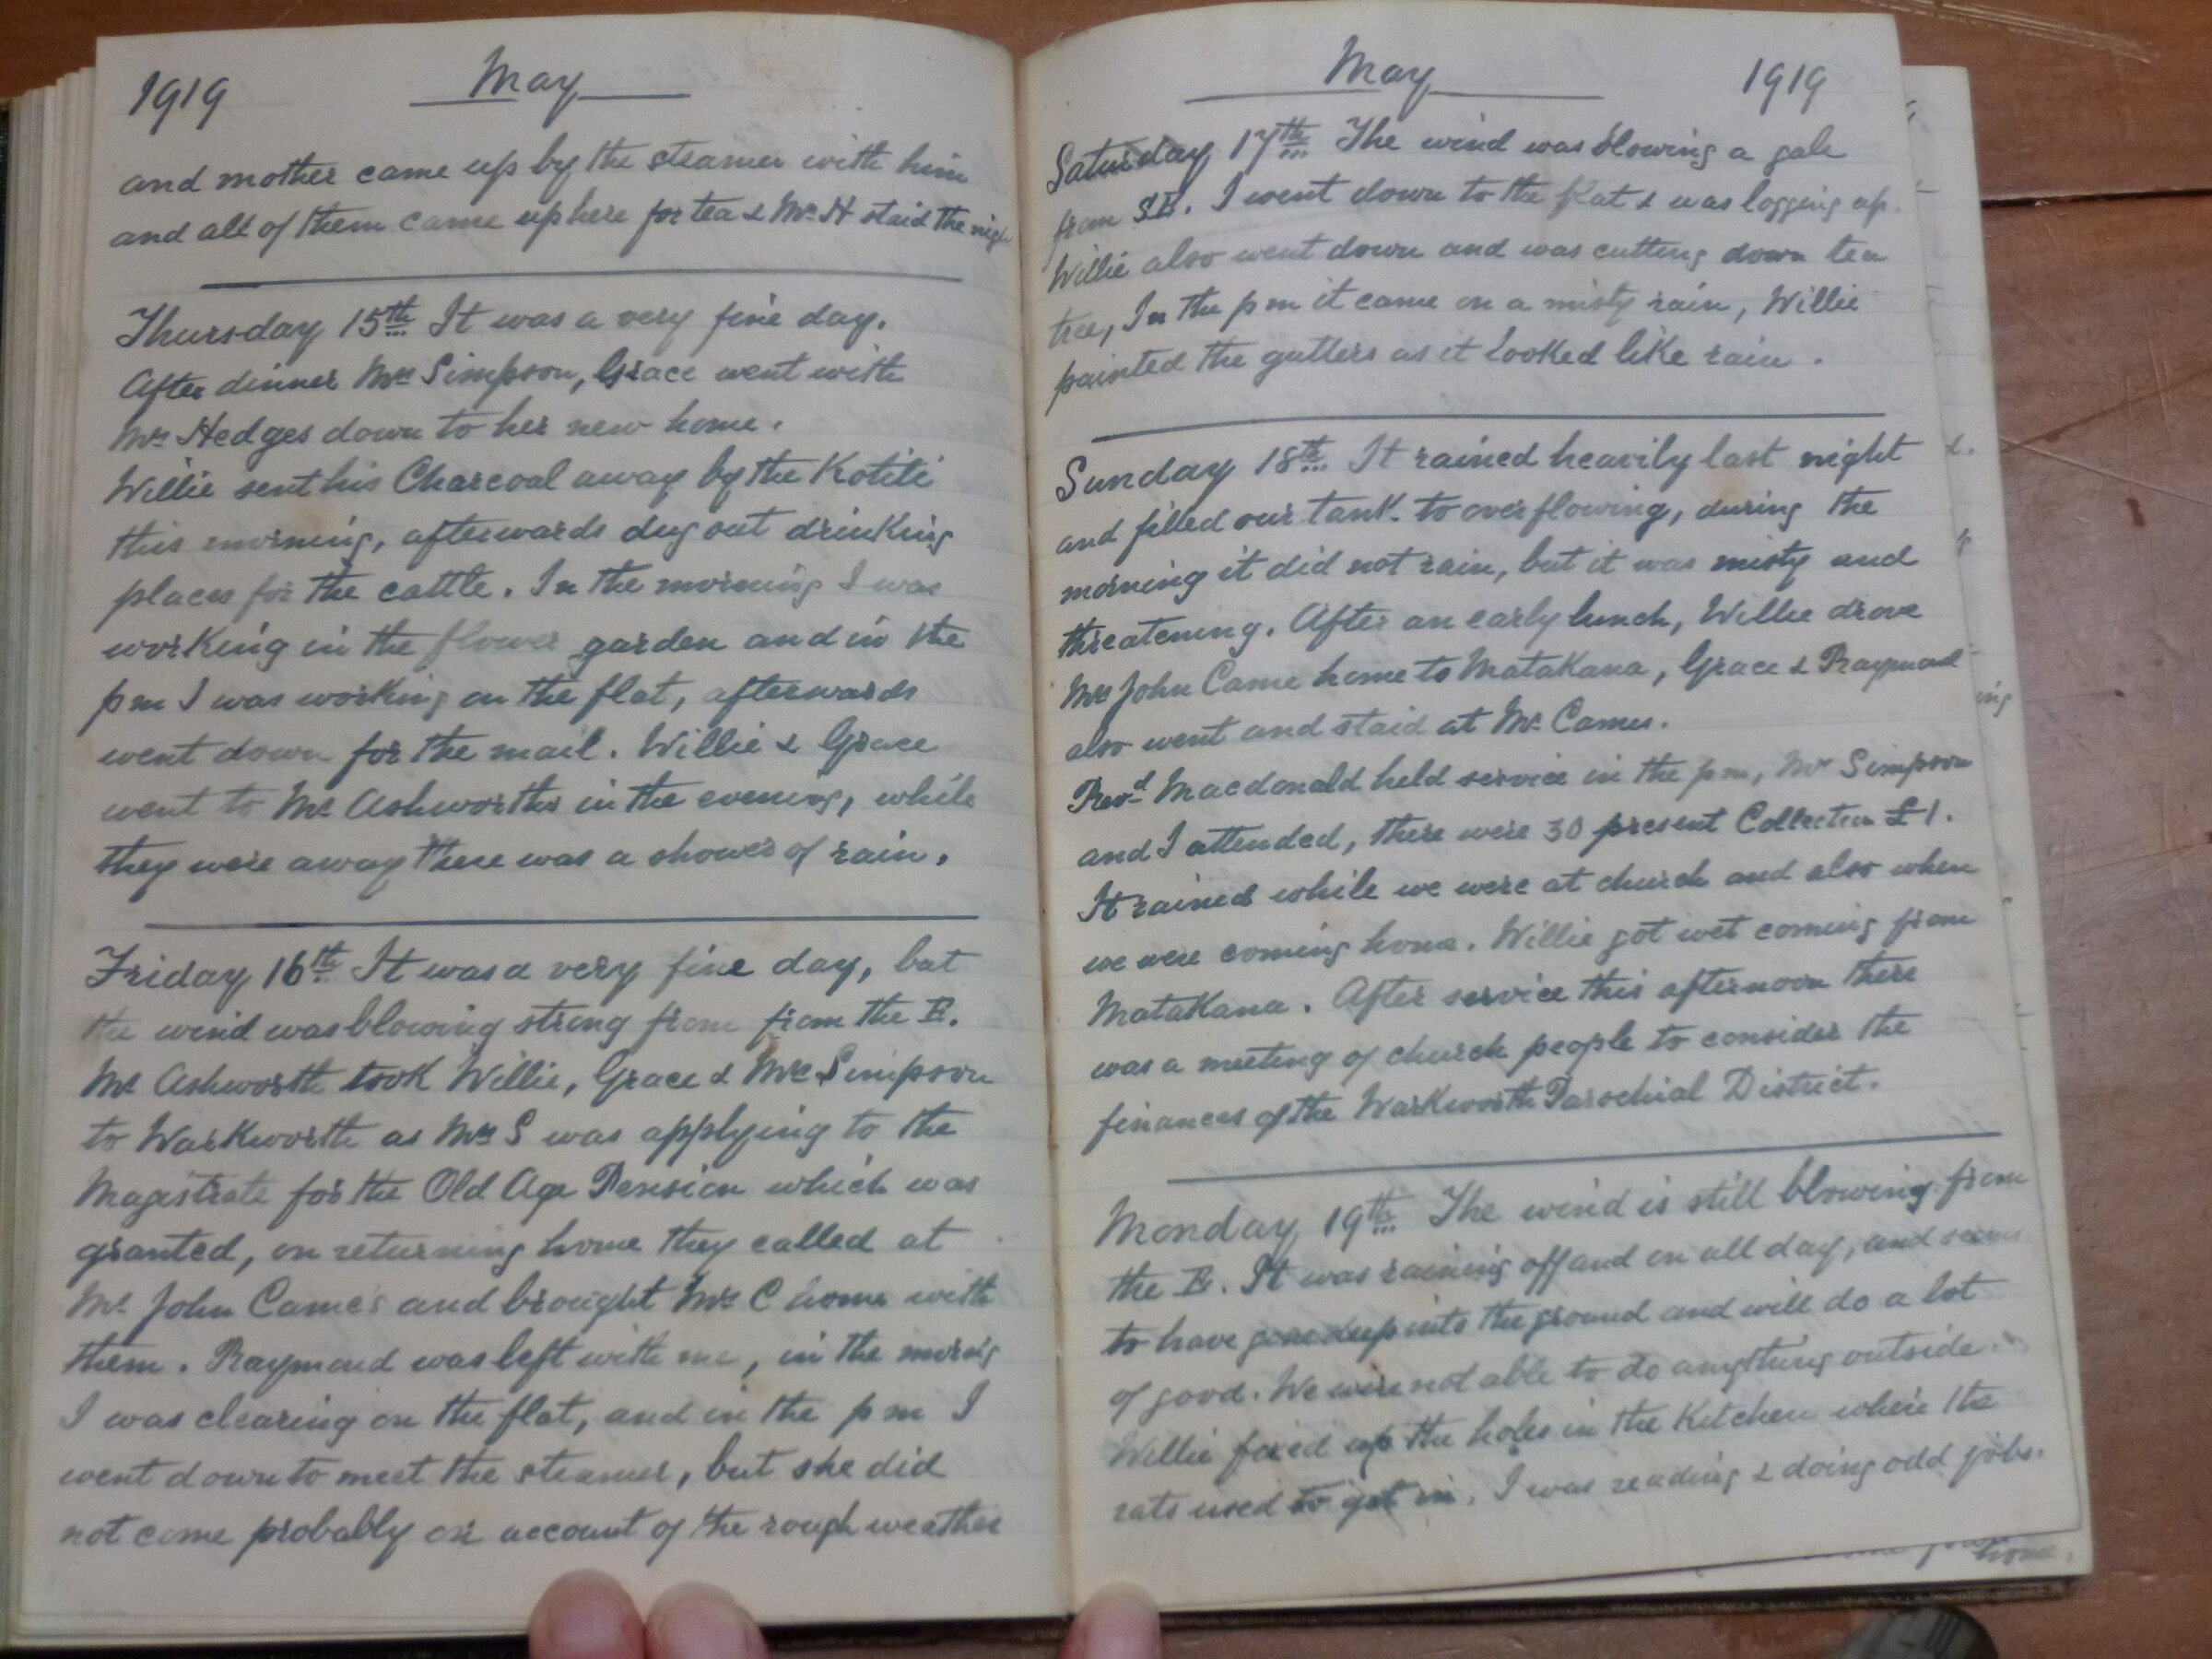 1919 May
and mother came up by the steamer with him
and all of them came up here for tea & Mr H staid the nigh
Thursday 15th It was a very fine day.
After dinner Mrs Simpson, Grace went with
Mrs Hedges down to her new home.
Willie sent his Charcoal away by the Kotiti
this morning, afterwards dug out drinking
places for the cattle. In the morning I was
working in the flower garden and in the
pm I was working on the flat, afterwards
went down for the mail. Willie & Grace
went to Mr Ashworths in the evening, while
they were away there was a shower of rain.
Friday 16th It was a very fine day, but
the wind was blowing strong from from the E.
Mr Ashworth took Willie, Grace & Mrs Simpson
to Warkworth as Mrs S was applying to the
Magistrate for the Old Age Pension which was
granted, on returning home they called at
Mr John Cames and brought Mrs C home with
them. Raymond was left with me, in the morng
I was clearing on the flat, and in the pm I
went down to meet the steamer, but she did
not come probably on account of the rough weather
May 1919
Saturday 17th The wind was blowing a gale
from SE. I went down to the flat & was logging up.
Willie also went down and was cutting down tea
tree, In the pm it came on a misty rain, Willie
painted the gutters as it looked like rain.
Sunday 18th It rained heavily last night
and filled our tank to overflowing, during the
morning it did not rain, but it was misty and
threatening. After an early lunch, Willie drove
Mrs John Came home to Matakana, Grace & Raymond
also went and staid at Mr Cames.
Revd Macdonald held service in the pm, Mrs Simpson
and I attended, there were 30 present Collection £1.
It rained while we were at church and also when
we were coming home. Willie got wet coming from
Matakana. After service this afternoon there
was a meeting of church people to consider the
finances of the Warkworth Parochial District.
Monday 19th The wind is still blowing from
the E. It was raining off and on all day, and seems
to have gone deep into the ground and will do a lot
of good. We were not able to do anything outside.
Willie fixed up the holes in the Kitchen where the
rats used to get in. I was reading & doing odd jobs.
home.